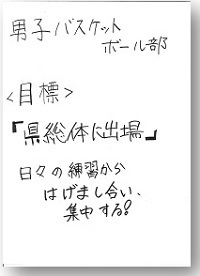 男子バスケット
ボール部
<目標>
「県総体に出場」
日々の練習から
はげまし合い、
集中する!